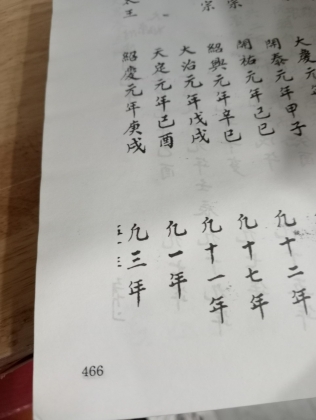 宗
宗
王
大慶元
開泰元年甲子
開祐元年己巳 凢十二年
紹興元年辛巳 凢十七年
大治元年戊戌 凢十一年
天定元年己酉 凢一年
紹慶元年庚戌 凢三年
466